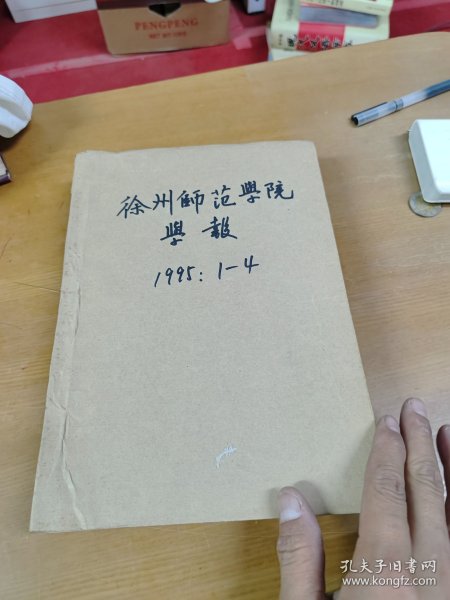 PENGPENG
徐州師范學院
學報
1995: 1-4
孔夫子旧书网
www.kongfz.com